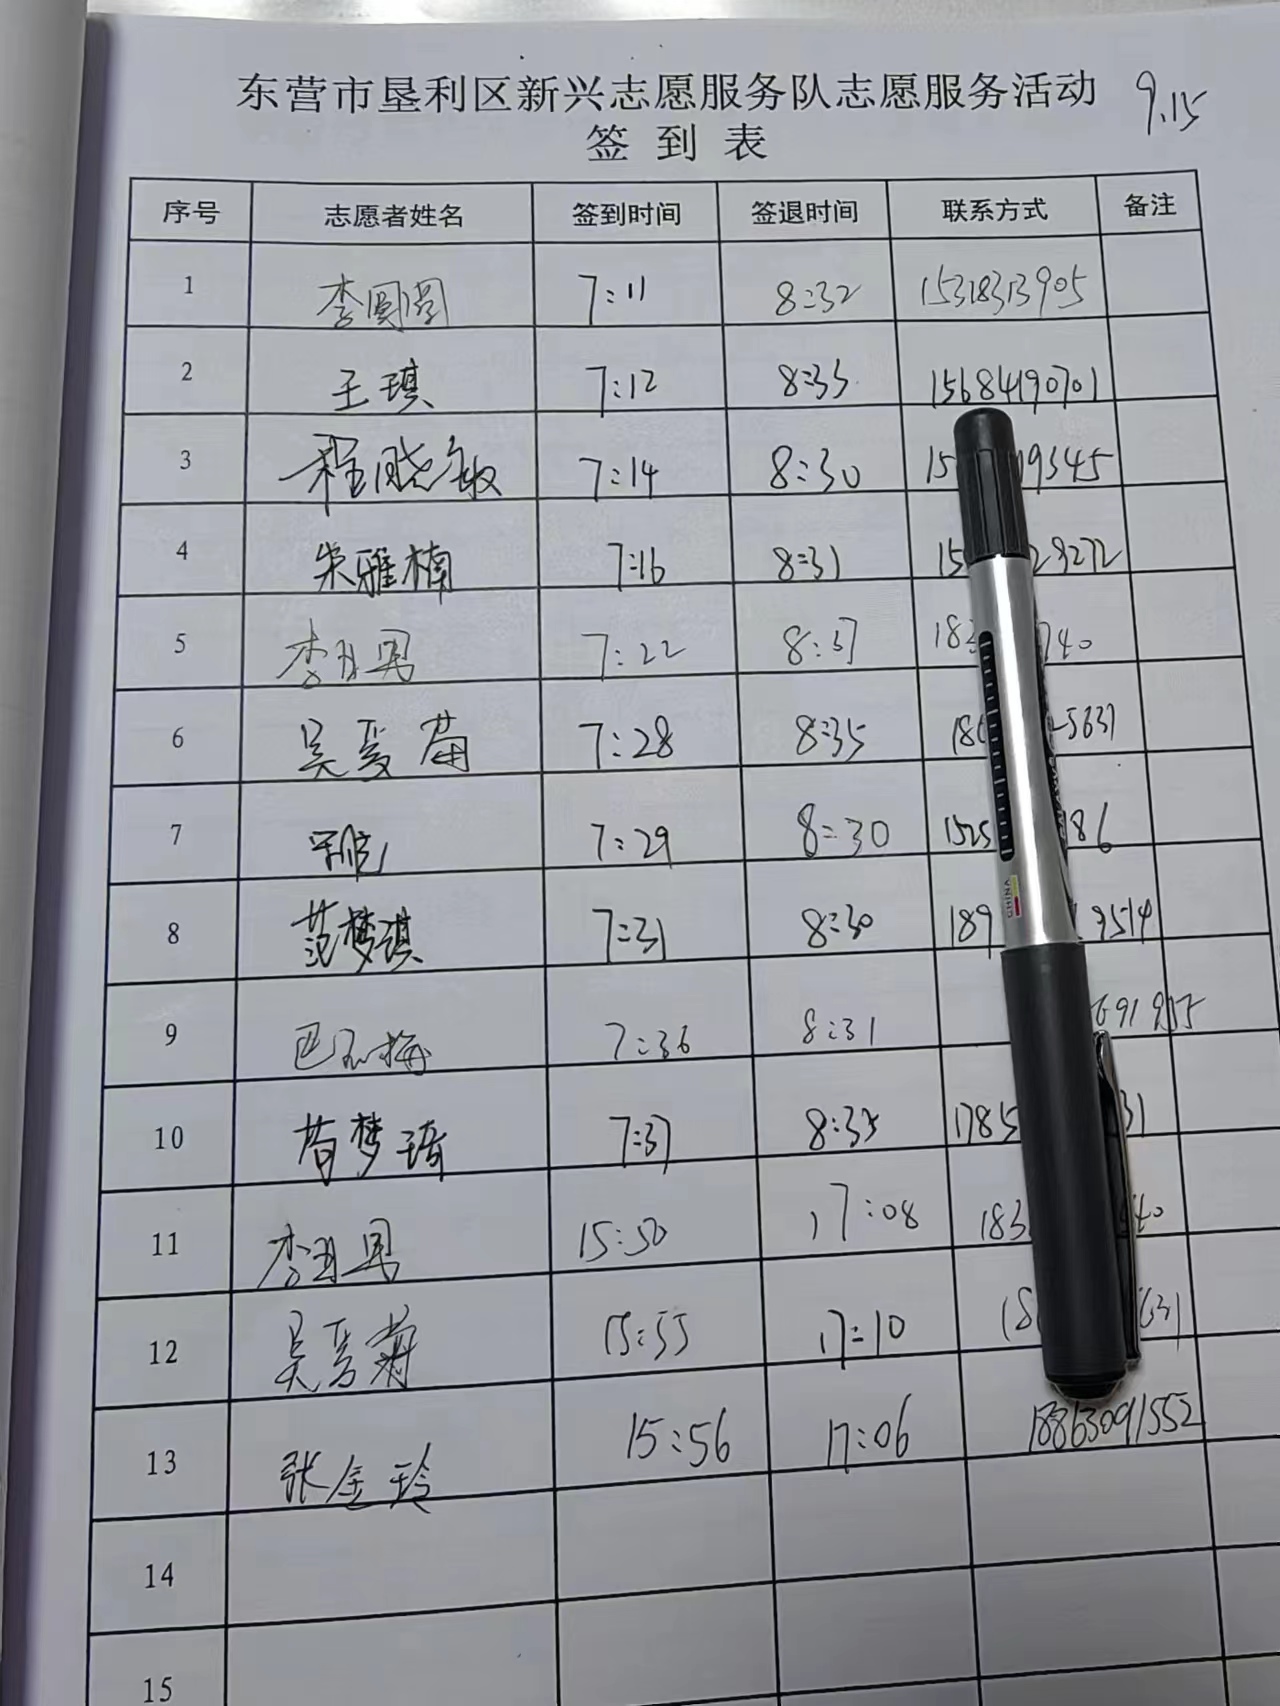 东营市垦利区新兴志愿服务队志愿服务活动 9.15
签到表
序号 志愿者姓名 签到时间 签退时间 联系方式 备注
1 李圆圆 7:11 8:32 15318313905
2 王琪 7:12 8:35 15684190701
3 程晓敏 7:14 8:30 15 19345
4 朱雅楠 7:16 8:31 15 28272
5 李 7:22 8:37 183 740
6 吴爱菊 7:28 8:35 18 5631
7 7:29 8:30 1525 186
8 范梦琪 7:31 8:30 189 9514
9 巴 梅 7:36 8:31 691955
10 苟梦琦 7:37 8:35 1785 31
11 李 15:50 17:08 183 40
12 吴爱菊 15:55 17:10 18 631
13 张金玲 15:56 17:06 18863091552
14
15
CHINA